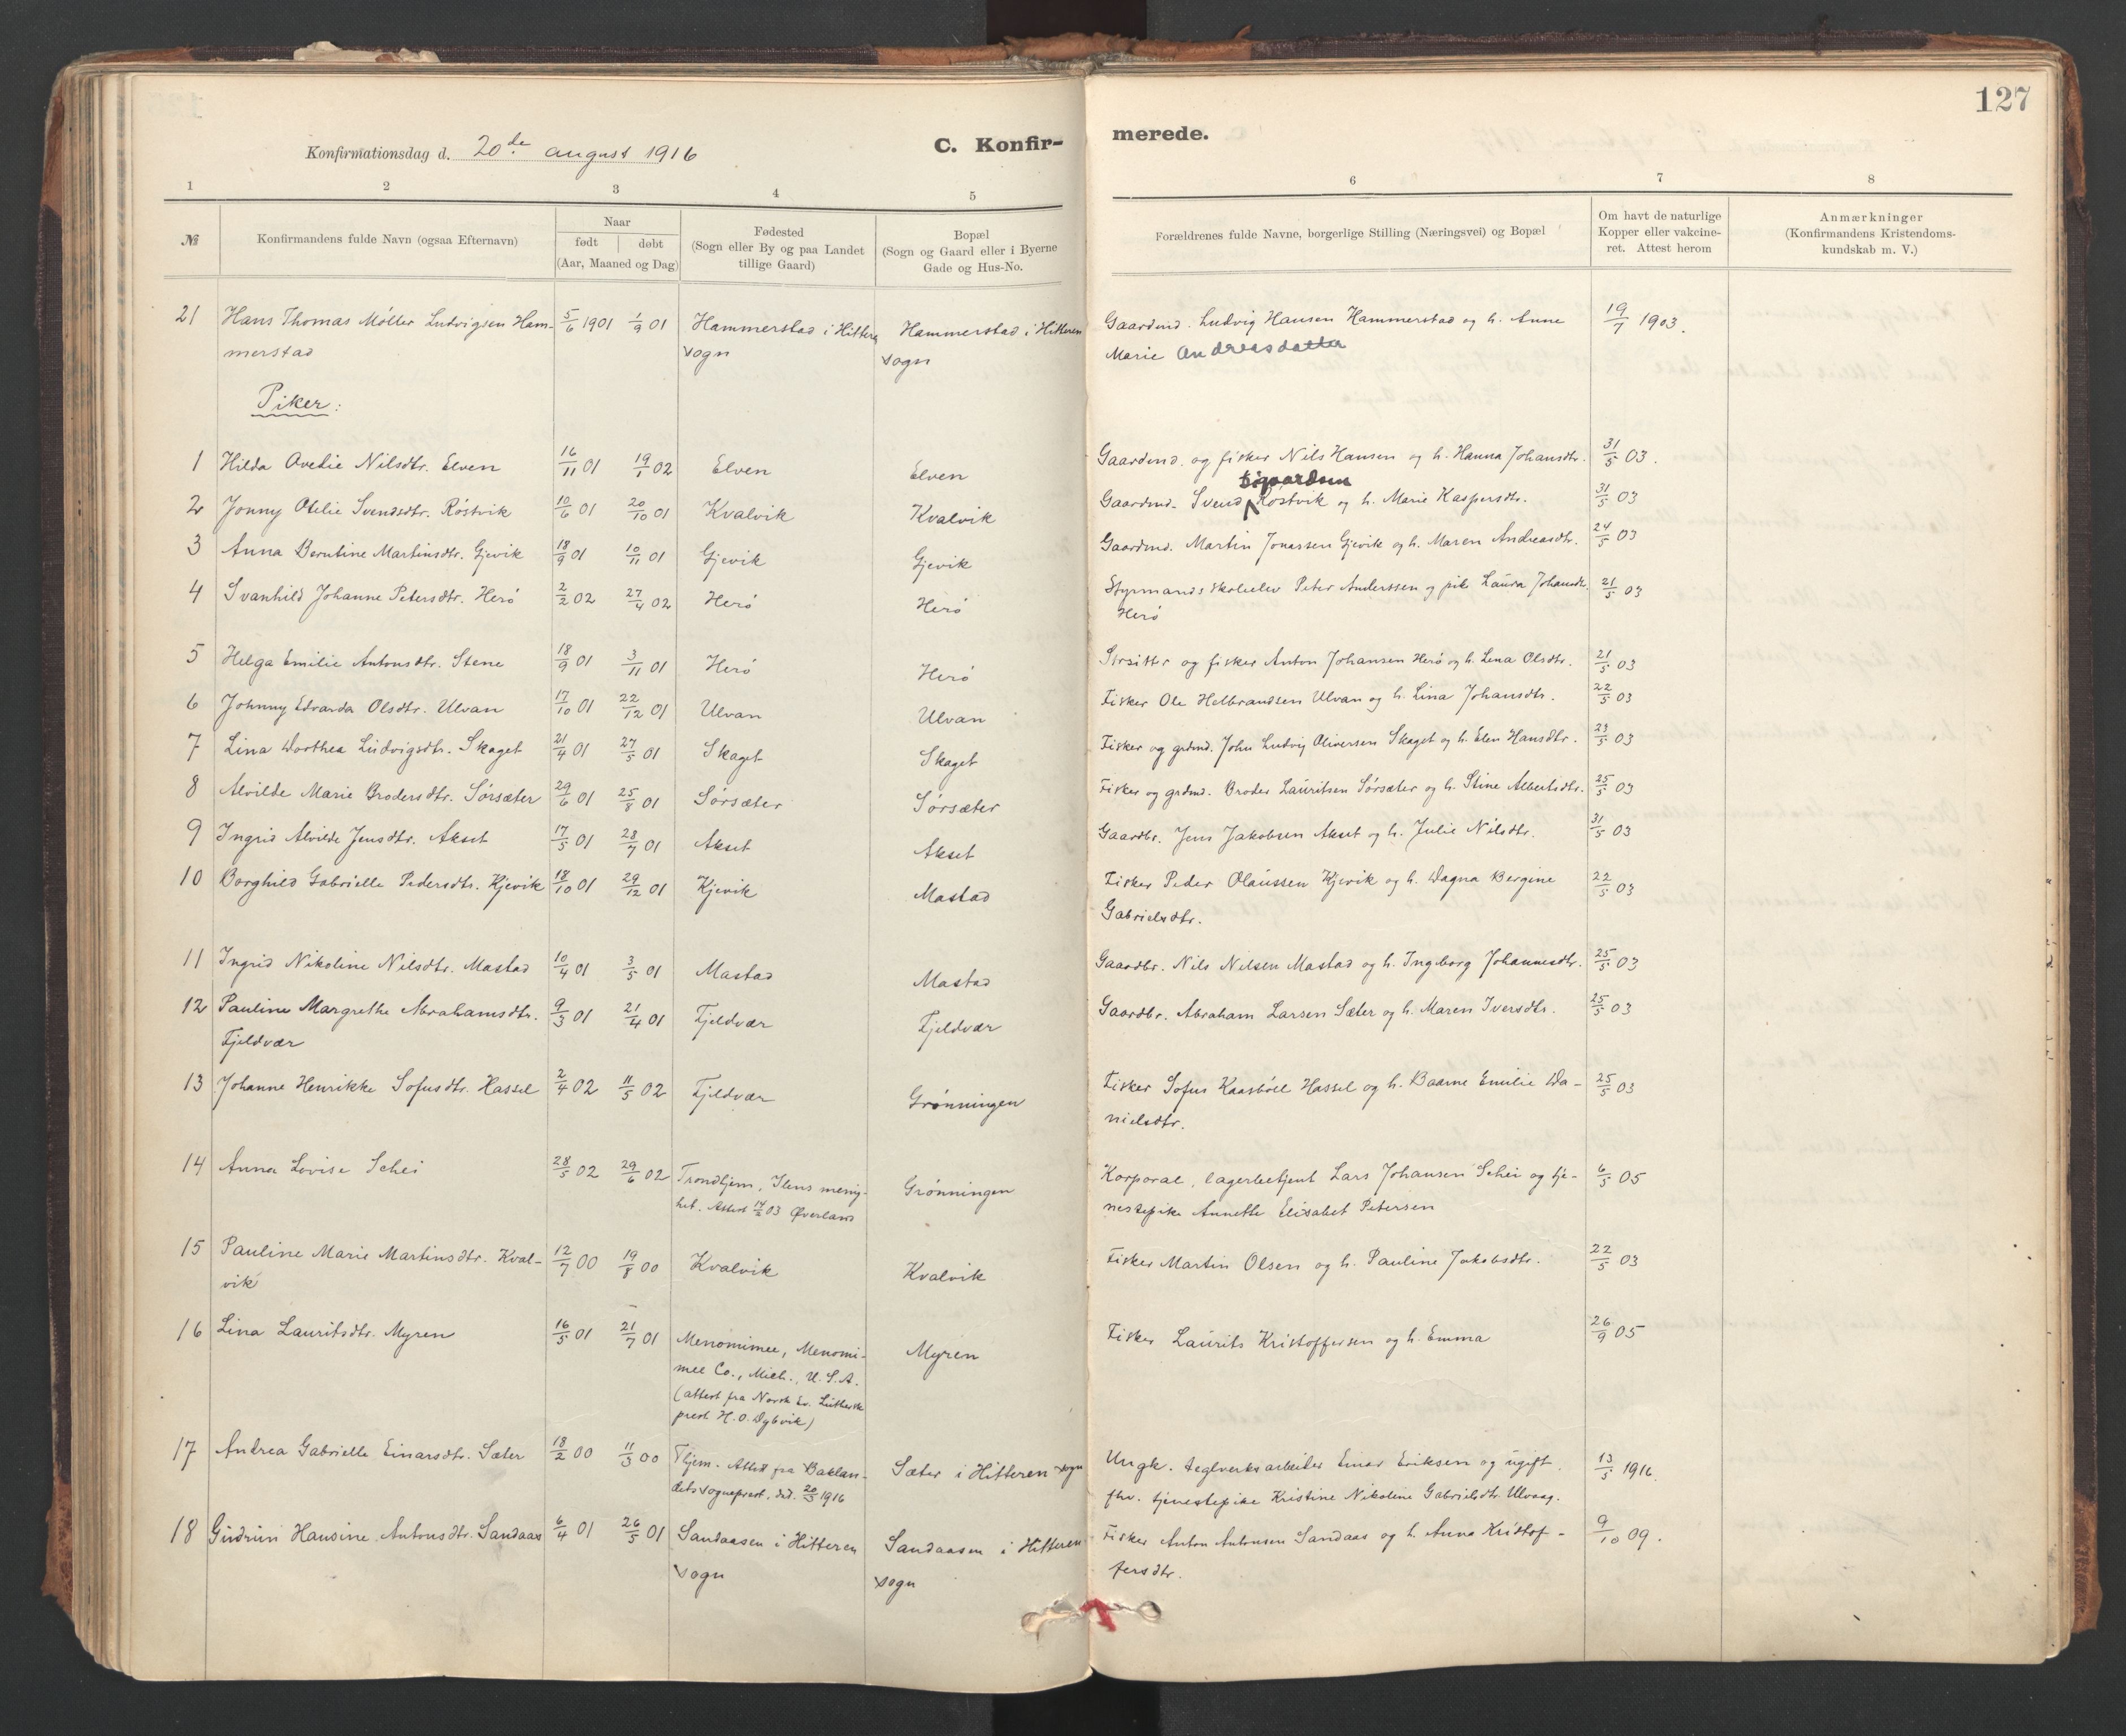 127
Konfirmationsdag d. 20de august 1916
C. Konfir-
merede.
1 2 3 4 5 6 7 8
№
Konfirmandens fulde Navn (ogsaa Efternavn)
Naar
født døbt
(Aar, Maaned og Dag)
Fødested
(Sogn eller By og paa Landet
tillige Gaard)
Bopæl
(Sogn og Gaard eller i Byerne
Gade og Hus-No.
Forældrenes fulde Navne, borgerlige Stilling (Næringsvei) og Bopæl
Om havt de naturlige
Kopper eller vakcine-
ret. Attest herom
Anmærkninger
(Konfirmandens Kristendoms-
kundskab m. V.)
21 Hans Thomas Möller Ludvigsen Ham- 5/6 1901 1/9 01 Hammerstad i Hitteren Hammerstad i Hitteren Gaardmd. Ludvig Hansen Hammerstad og h. Anne 19/7 1903.
merstad sogn sogn Marie Andreasdatter
Piker:
1 Hilda Ovedie Nilsdtr. Elven 16/11 01 19/1 02 Elven Elven Gaardmd. og fisker Nils Hansen og h. Hanna Johansdtr. 31/5 03.
Sigvardsen
2 Jonny Otilie Svendsdtr. Röstvik 10/6 01 20/10 01 Kvalvik Kvalvik Gaardmd. Svend Röstvik og h. Marie Kaspersdtr. 31/5 03
3 Anna Berntine Martinsdtr. Gjevik 18/9 01 10/11 01 Gjevik Gjevik Gaardmd. Martin Jonassen Gjevik og h. Maren Andreasdtr. 24/5 03
4 Svanhild Johanne Petersdtr. Herö 2/2 02 27/4 02 Herö Herö Styrmandsskoleelev Peter Anderssen og pike Laura Johansdtr. 21/5 03
Herö
5 Helga Emilie Antonsdtr. Stene 18/9 01 3/11 01 Herö Herö Strsitter og fisker Anton Johansen Herö og h. Lena Olsdtr. 21/5 03
6 Johnny Edvarda Olsdtr. Ulvan 17/10 01 22/12 01 Ulvan Ulvan Fisker Ole Helbrandsen Ulvan og h. Lina Johansdtr. 22/5 03
7 Lina Dorthea Ludvigsdtr. Skaget 21/4 01 27/5 01 Skaget Skaget Fisker og grdmd. John Ludvig Oliversen Skaget og h. Elen Hansdtr. 23/5 03
8 Alvilde Marie Brodersdtr. Sörsæter 29/6 01 25/8 01 Sörsæter Sörsæter Fisker og grdmd. Broder Lauritsen Sörsæter og h. Stine Albertsdtr. 25/5 03
9 Ingrid Alvilde Jensdtr. Akset 17/5 01 28/7 01 Akset Akset Gaardbr. Jens Jakobsen Akset og h. Julie Nilsdtr. 31/5 03
10 Borghild Gabrielle Pedersdtr. Kjevik 18/10 01 29/12 01 Kjevik Mastad Fisker Peder Olaussen Kjevik og h. Dagna Bergine 22/5 03
Gabrielsdtr.
11 Ingrid Nikoline Nilsdtr. Mastad 10/4 01 3/5 01 Mastad Mastad Gaardbr. Nils Nilsen Mastad og h. Ingeborg Johannesdtr. 25/5 03
12 Pauline Margrethe Abrahamsdtr. 9/3 01 21/4 01 Fjeldvær Fjeldvær Gaardbr. Abraham Larsen Sæter og h. Maren Iversdtr. 25/5 03
Fjeldvær
13 Johanne Henrikke Sofusdtr. Hassel 2/4 02 11/5 02 Fjeldvær Grönningen Fisker Sofus Kaasböll Hassel og h. Baarne Emilie Da- 25/5 03
nielsdtr.
14 Anna Lovise Schei 28/5 02 29/6 02 Trondhjem, Ilens menig- Grönningen Korporal, lagerbetjent Lars Johansen Schei og tje- 6/5 05
het. Attest 14/2 03 Øverland nestepike Annette Elisabet Petersen
15 Pauline Marie Martinsdtr. Kval- 12/7 00 19/8 00 Kvalvik Kvalvik Fisker Martin Olsen og h. Pauline Jakobsdtr. 22/5 03
vik
16 Lina Lauritsdtr. Myren 16/5 01 21/7 01 Menomimee, Menomi- Myren Fisker Laurits Kristoffersen og h. Emma 26/9 05
mee Co., Mich., U.S.A.
(attest fra Norsk Ev. Luthersk
prest H.O. Dybvik)
17 Andrea Gabrielle Einarsdtr. Sæter 18/2 00 11/3 00 Thjem. Attest fra Baklan- Sæter i Hitteren sogn Ungk. teglverksarbeider Einar Eriksen og ugift. 13/5 1916.
dets sogneprest, dad. 20/3 1916 fhv. tjenestepike Kristine Nikoline Gabrielsdtr. Ulvaag.
18 Gudrun Hansine Antonsdtr. Sandaas 6/4 01 26/5 01 Sandaasen i Hitteren Sandaasen i Hitteren Fisker Anton Antonsen Sandaas og h. Anna Kristof- 9/10 09.
sogn sogn fersdtr.